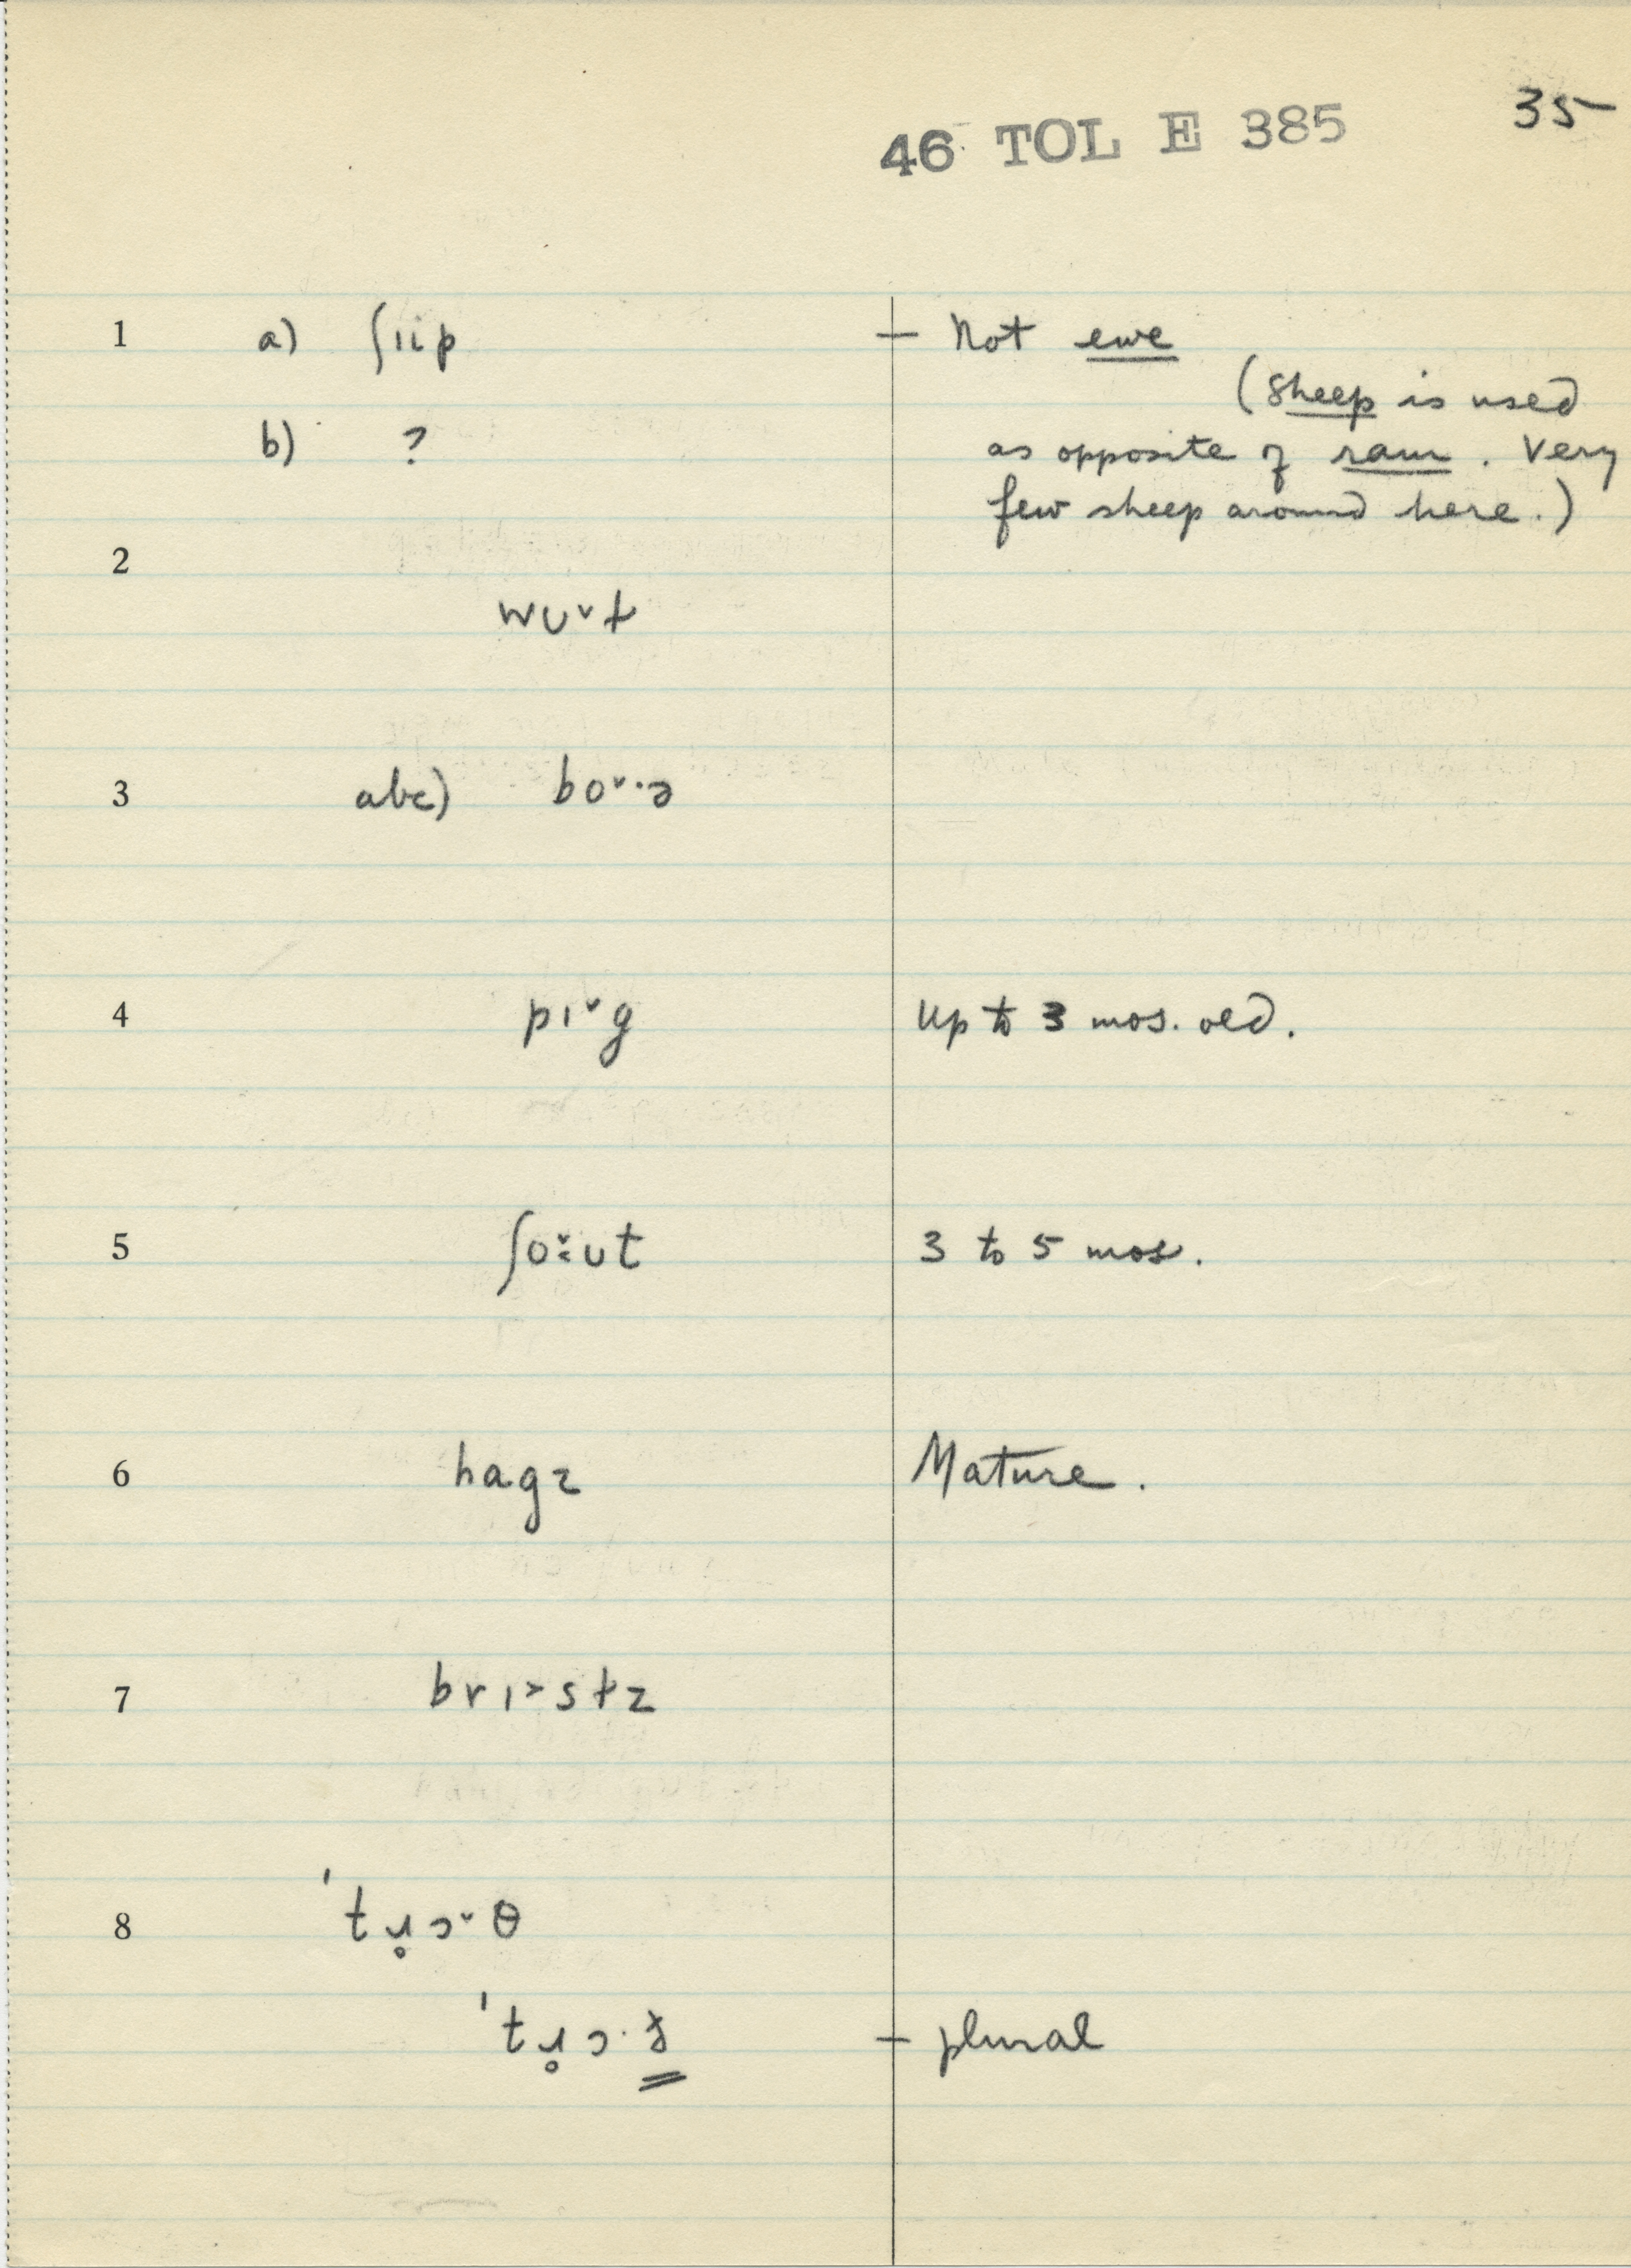 35
46 TOL E 385
1 a) ʃɪip — Not ewe
(Sheep is used
b) ? as opposite of ram. Very
few sheep around here.)
2
wʊ˅t
3 abc) bo˅·ə
4 pɪ˅g Up to 3 mos. old.
5 ʃo˅:ʊt 3 to 5 mos.
6 hagz Mature.
7 brɪ>stz
8 'tɹ̥ɔ˅θ
'tɹ̥ɔ·ɤ — plural